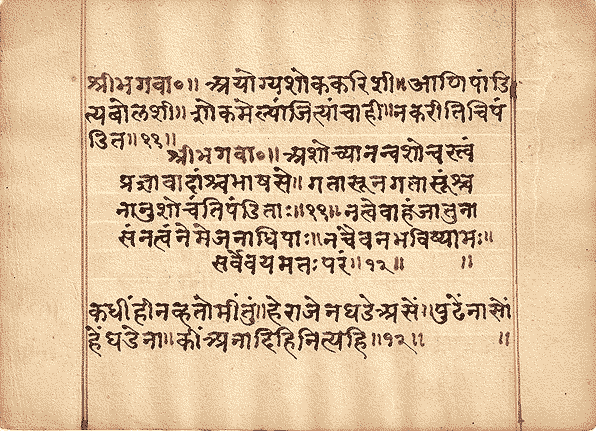 श्रीभगवा०॥ अयोग्यशोककरिशी॥आणिपांडि
त्यबोलशी॥शोकमेल्यांजित्यांचाही॥नकरीतिचिपं
डित॥११॥
श्रीभगवा०॥ अशोच्यानन्वशोचस्त्वं
प्रज्ञावादांश्चभाषसे॥गतासूनगतासूंश्च
नानुशोचंतिपंडिताः॥११॥नत्वेवाहंजातुना
संनत्वंनेमेजनाधिपाः॥नचैवनभविष्यामः॥
सर्वेवयमतःपरं॥१२॥ ॥
कधींहीनव्हतोमींतुं॥हेराजेनघडेअसें॥पुढेंनासों
हेंघडेना॥कींअनादिहिनित्यहि॥१२॥ ॥